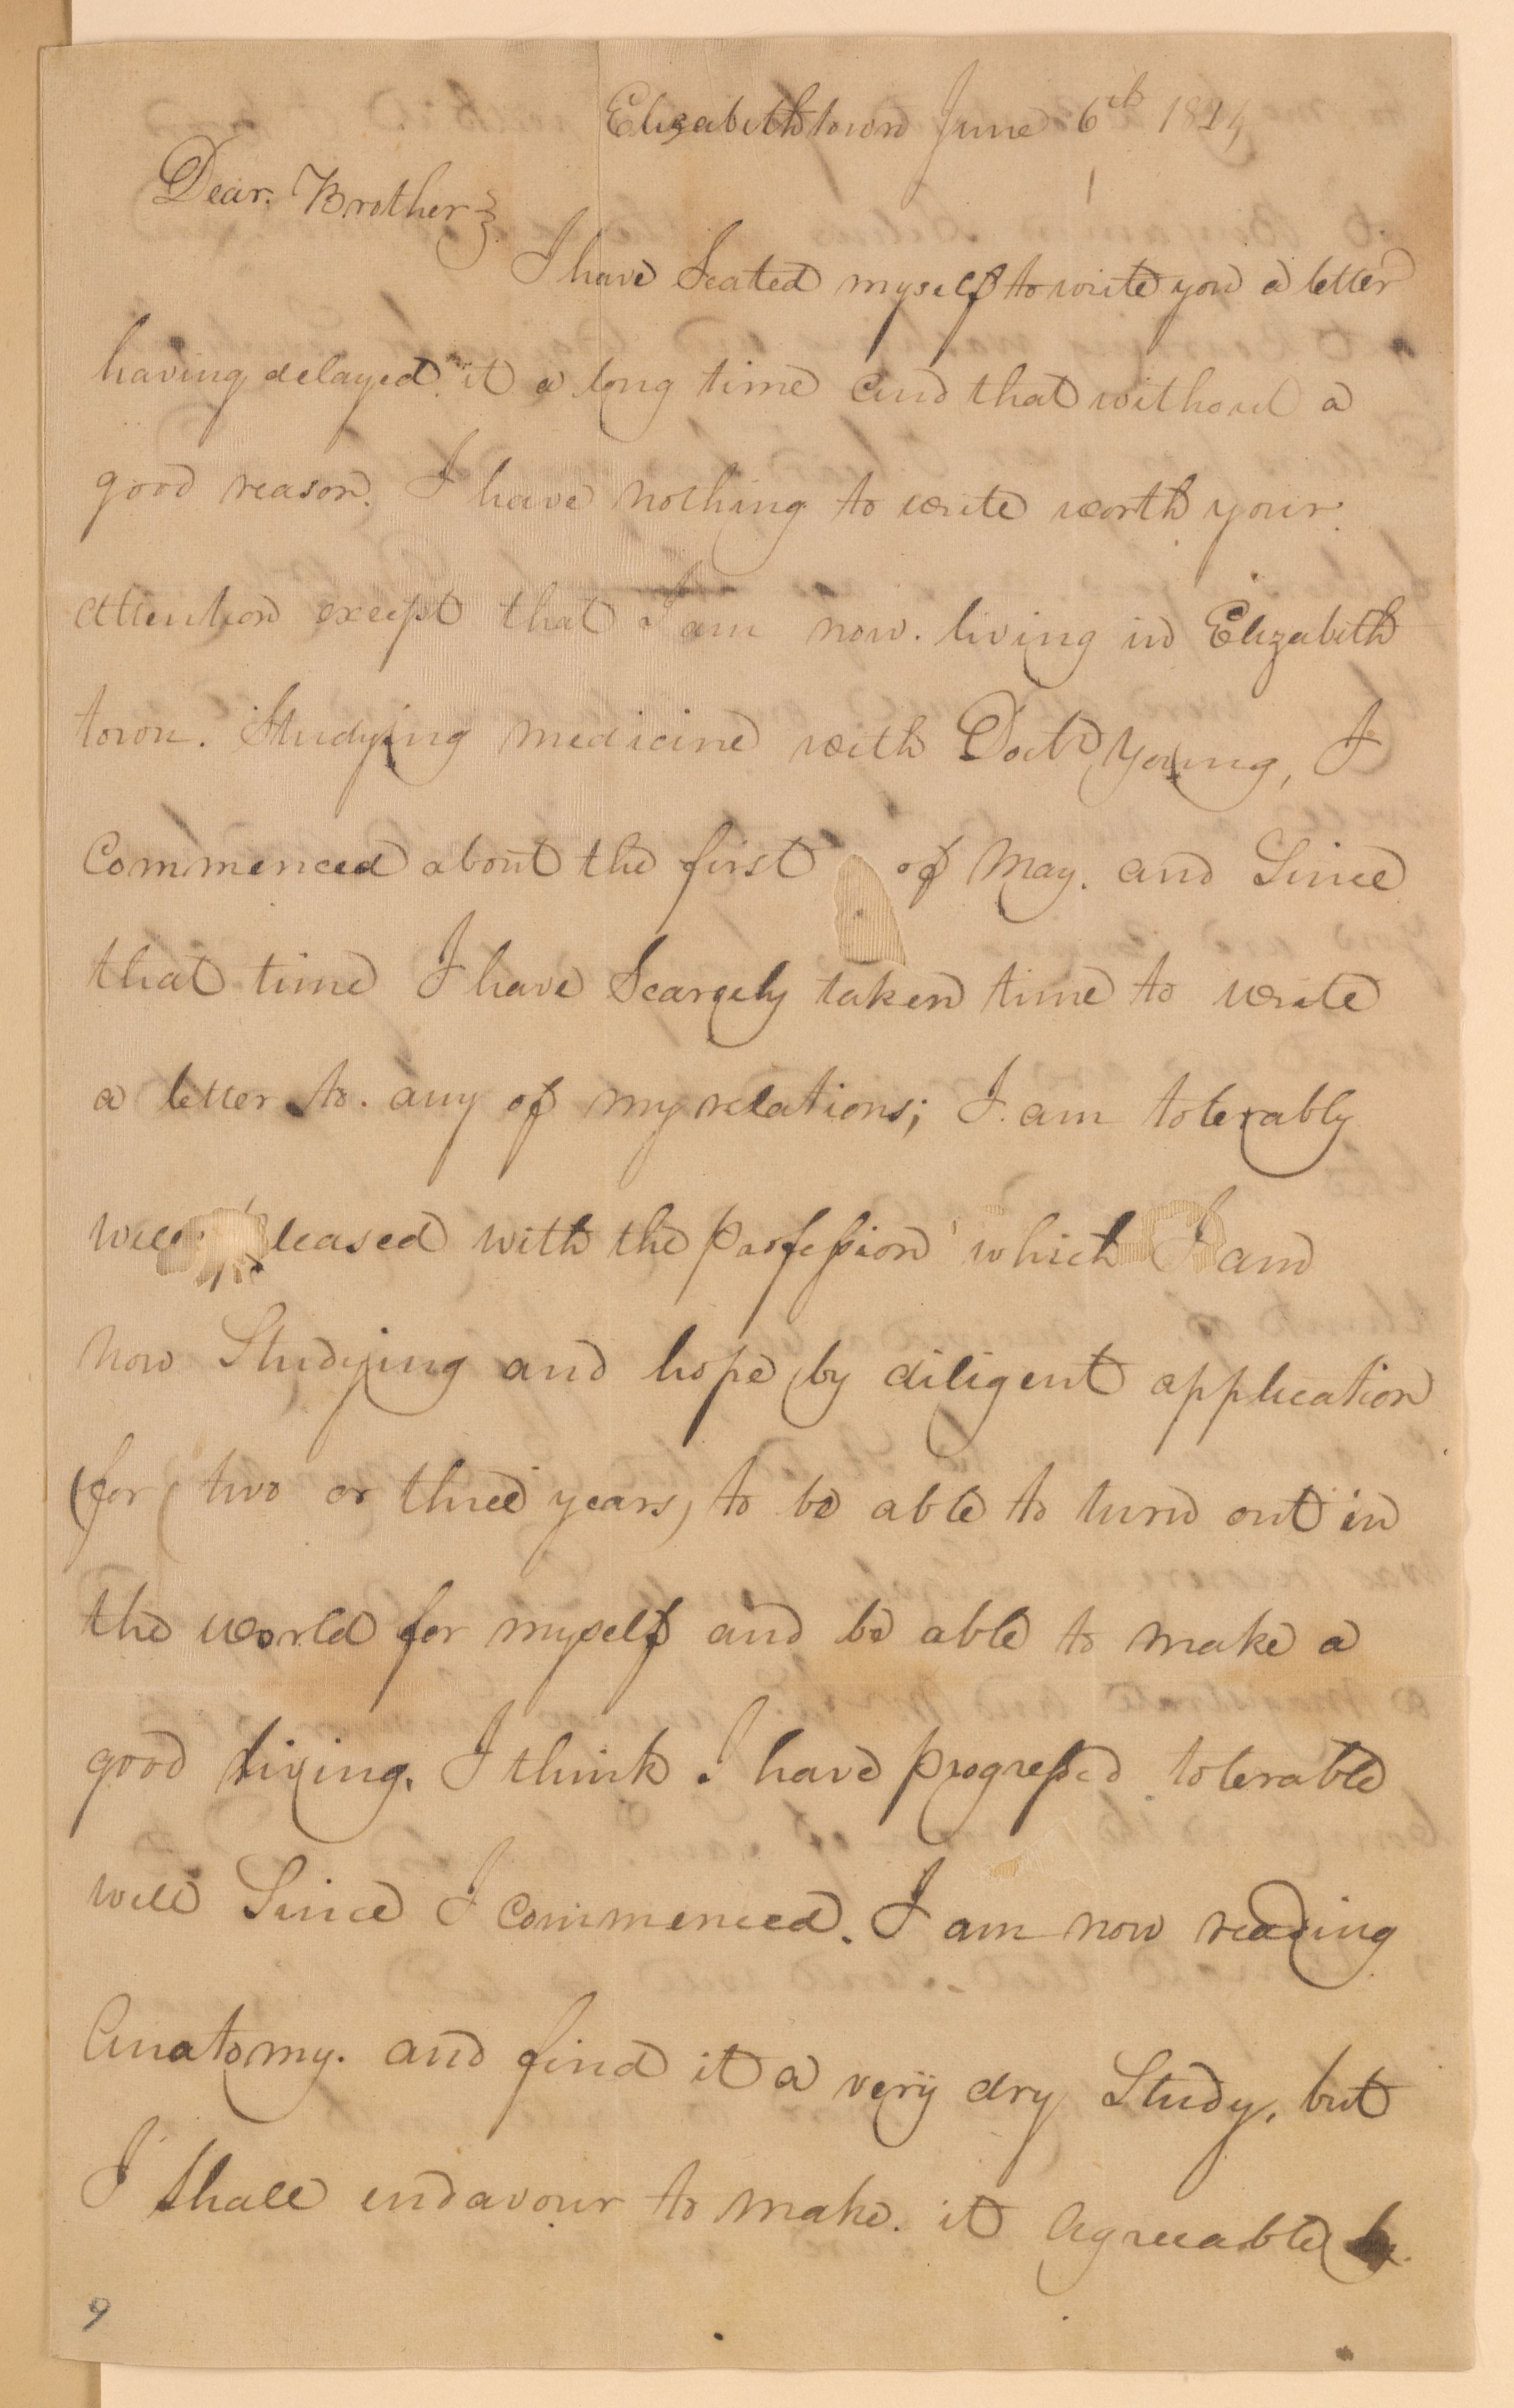 Elizabethtown June 6th 1824
Dear. Brother
I have Seated myself to write you a letter
having delayed it a long time and that without a
good reason. I have nothing to write worth your
attention except that I am now. living in Elizabeth
town. Studying medicine with Doct Young, I
Commenced about the first of May. and Since
that time I have Scarcely taken time to write
a letter to. any of my relations; I. am tolerably
well pleased with the Profession which I am
now Studying and hope by diligent application
(for two or three years) to be able to turn out in
the world for myself and be able to make a
good living. I think I have progressed tolerable
well Since I commenced. I am now reading
Anatomy. and find it a very dry Study, but
I shall endavour to make. it Agreeable
9